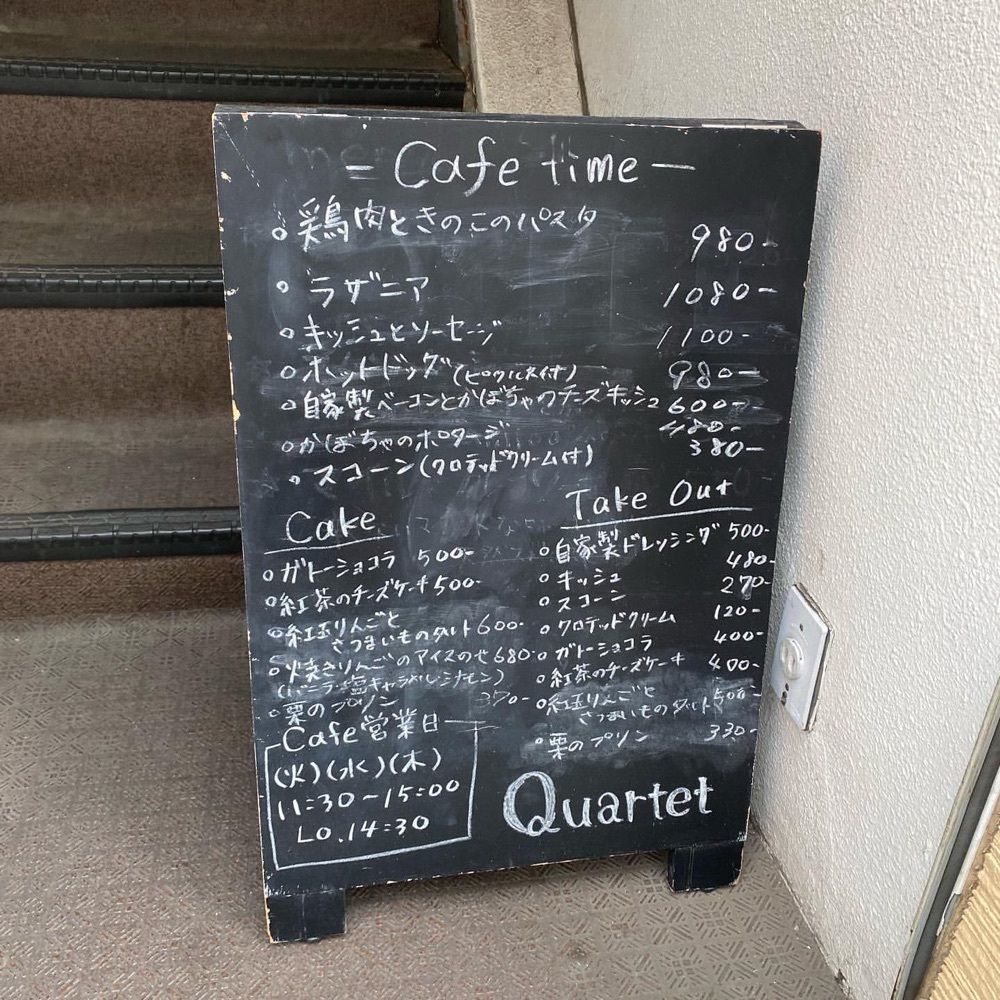 - Cafe time -
。鶏肉ときのこのパスタ 980-
。ラザニア 1080-
。キッシュとソーセージ 1100-
。ホットドッグ(ピクルス付) 980-
。自家製ベーコンとかぼちゃのチーズキッシュ 600-
。かぼちゃのポタージュ 480-
。スコーン(クロテッドクリーム付) 380-
Cake
。ガトーショコラ 500-
。紅茶のチーズケーキ 500-
。紅玉りんごと
さつまいものタルト 600-
。焼きりんごのアイスのせ 680-
(バニラ・塩キャラメル・シナモン)
。栗のプリン 370-
Take Out
。自家製ドレッシング 500-
。キッシュ 480-
。スコーン 270-
。クロテッドクリーム 120-
。ガトーショコラ 400-
。紅茶のチーズケーキ 400-
。紅玉りんごと
さつまいものタルト 500-
。栗のプリン 330-
Cafe営業日
(火)(水)(木)
11:30~15:00
LO.14:30
Quartet